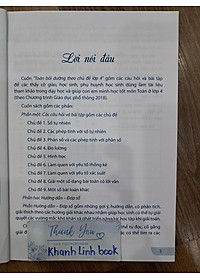 Lời nói đầu
Cuốn "Toán bồi dưỡng theo chủ đề lớp 4" gồm các câu hỏi và bài tập
để các thầy cô giáo, học sinh, phụ huynh học sinh dùng làm tài liệu
tham khảo trong dạy học và giúp con em mình học tốt môn Toán ở lớp 4
(theo Chương trình Giáo dục phổ thông 2018).
Cuốn sách gồm các phần:
Phần một: Các câu hỏi và bài tập gồm các chủ đề
Chủ đề 1. Số tự nhiên
Chủ đề 2. Các phép tính với số tự nhiên
Chủ đề 3. Phân số và các phép tính với phân số
Chủ đề 4. Đo lường
Chủ đề 5. Hình học
Chủ đề 6. Làm quen với yếu tố thống kê
Chủ đề 7. Làm quen với yếu tố xác suất
Chủ đề 8. Giải một số dạng bài toán có lời văn
Chủ đề 9. Một số bài toán khác
Phần hai: Hướng dẫn - Đáp số
Phần Hướng dẫn - Đáp số gồm những gợi ý, hướng dẫn, có phân tích,
giải thích theo các hướng giải khác nhau nhằm giúp học sinh có thể tự
Thank You
Khanh Linh book